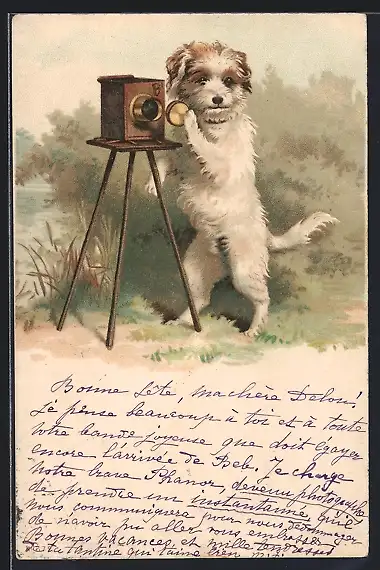 Bonne fête, ma chère Delou!
Je pense beaucoup à toi et à toute
votre bande joyeuse que doit égayer
encore l'arrivée de Bob. Je charge
notre brave Phanor, devenu photographe
de prendre un instantané qu'il
nous communiquera pour nous dédommager
de n'avoir pu aller vous embrasser.
Bonnes vacances et mille tendresses
de ta tantine qui t'aime bien